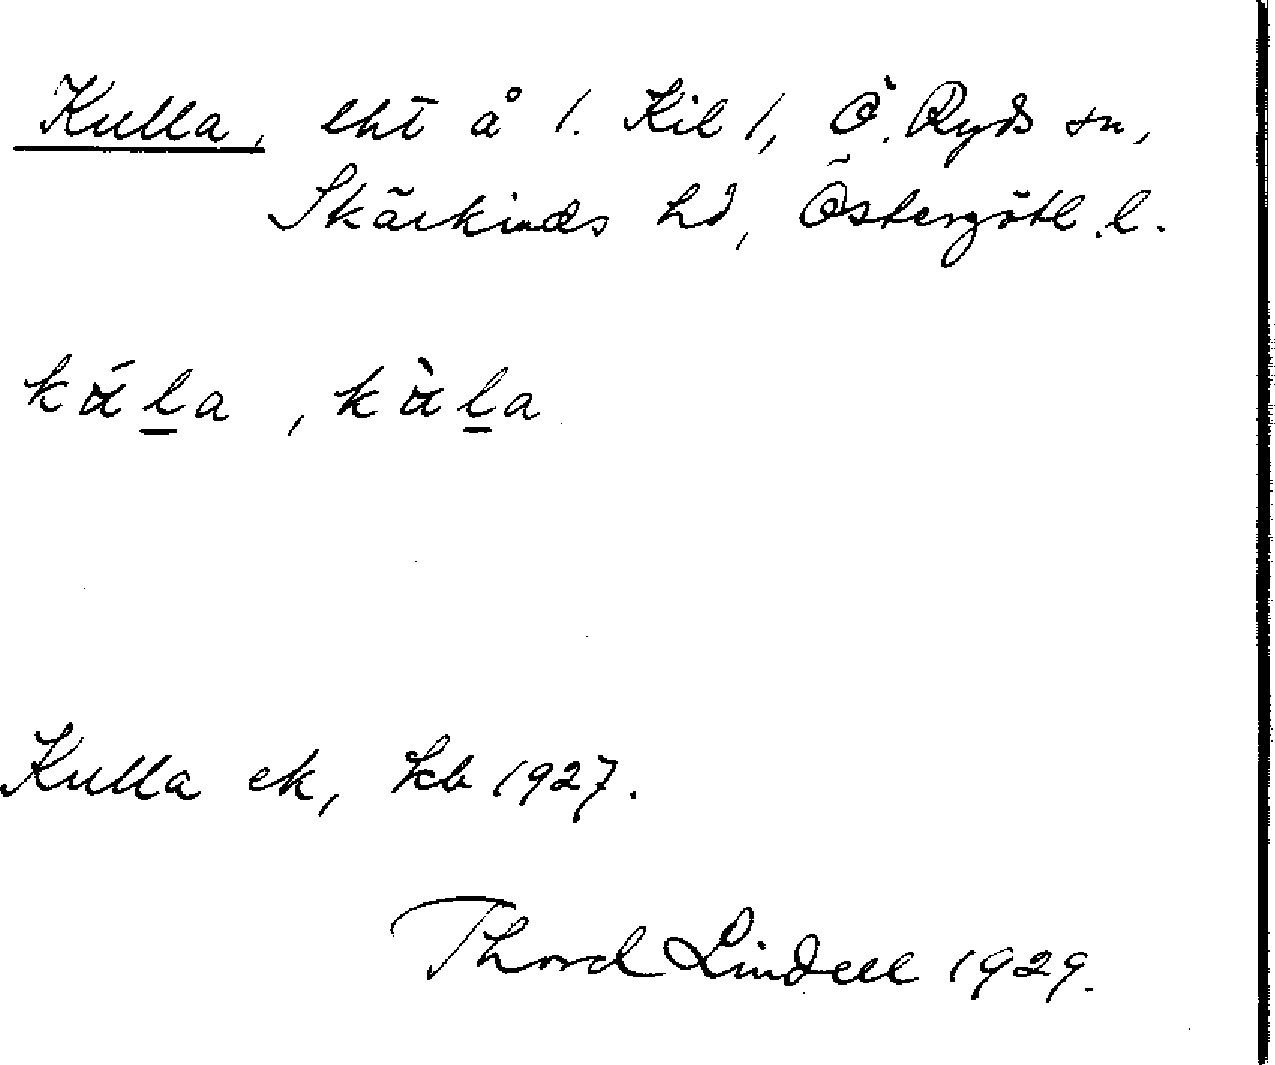 Kulla, lht å 1. Kil 1, Ö. Ryds sn,
Skärkinds hd, Östergötl. l.
kάl̠a, kὰl̠a
Kulla ek, kb 1927.
Thord Lindell 1929.